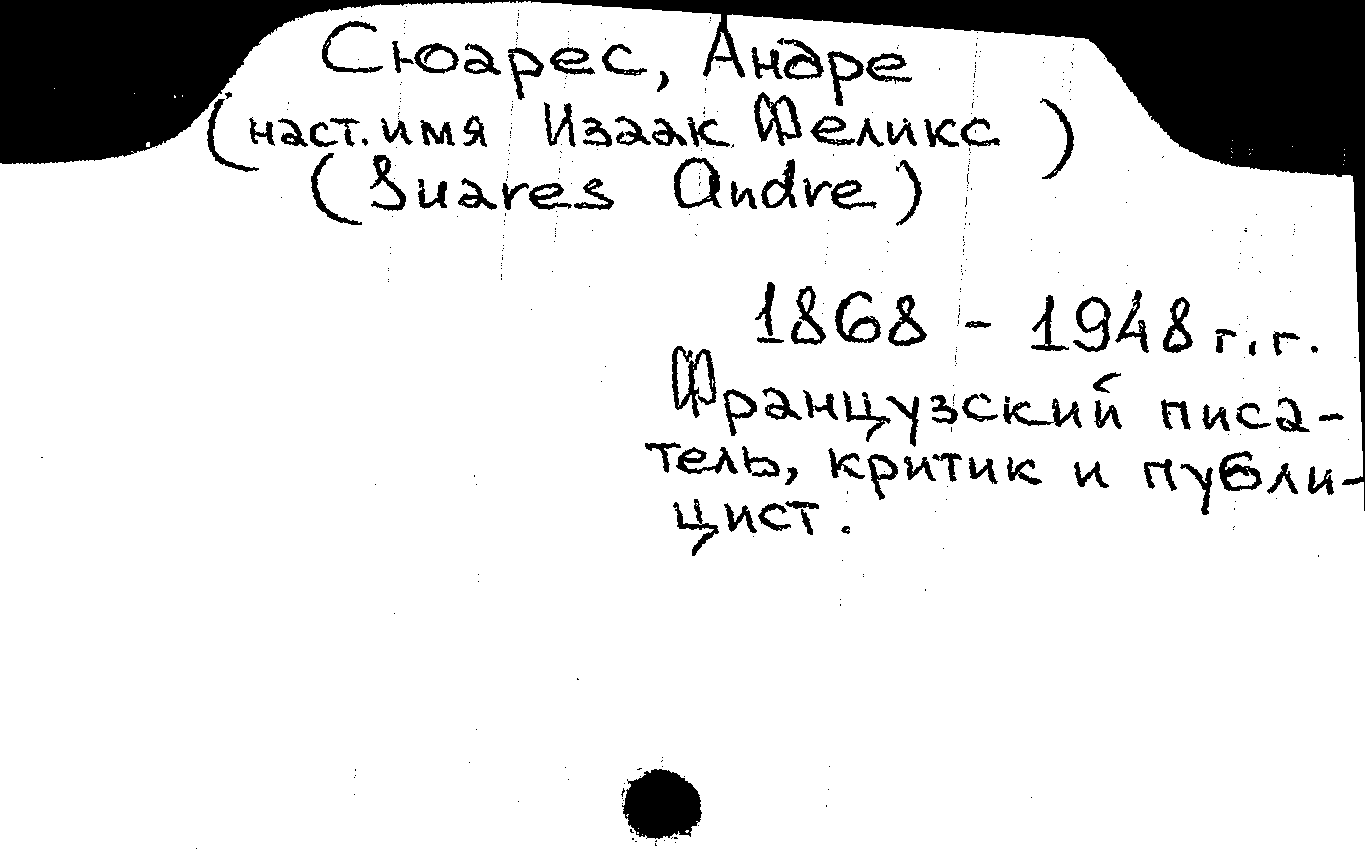 Сюарес, Андре
(наст. имя Изаак Феликс)
(Suares Andre)
1868 - 1948 г.г.
Французский писа-
тель, критик и публи-
цист.